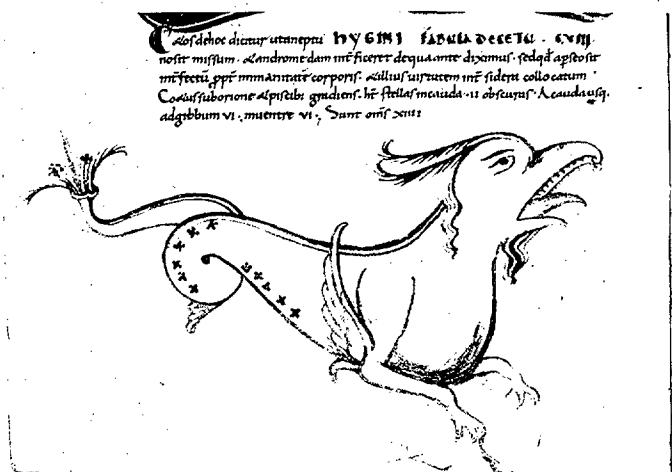 Cœlos dehoc dicitur utaneptu HYGINI FABULA DECETU . CVIII
nosit missum . Aandromedam int̄ficeret dequa ante diximus . sedqđ apseosit
int̄fectū ꝓpt̄ inmanitatē corporis . Aillius uirtutem int̄ sidera collocatum
suborione gradiens . ht̄ stellas incauda . ii obscuras . Acauda usq.
adgibbum vi . inuentre vi . Sunt om̄s xiiii